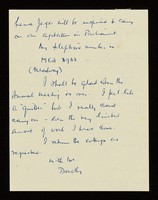 Lena Jeger will be inspired to carry
on our agitation in Parliament
My telephone number is
(Macaulay)
I shall be glad when the
Annual meeting is over. I feel like
a "quitter" but I really cannot
carry on - even the very limited
amount of work I have done.
I return the cuttings as
requested.
with love
Dorothy